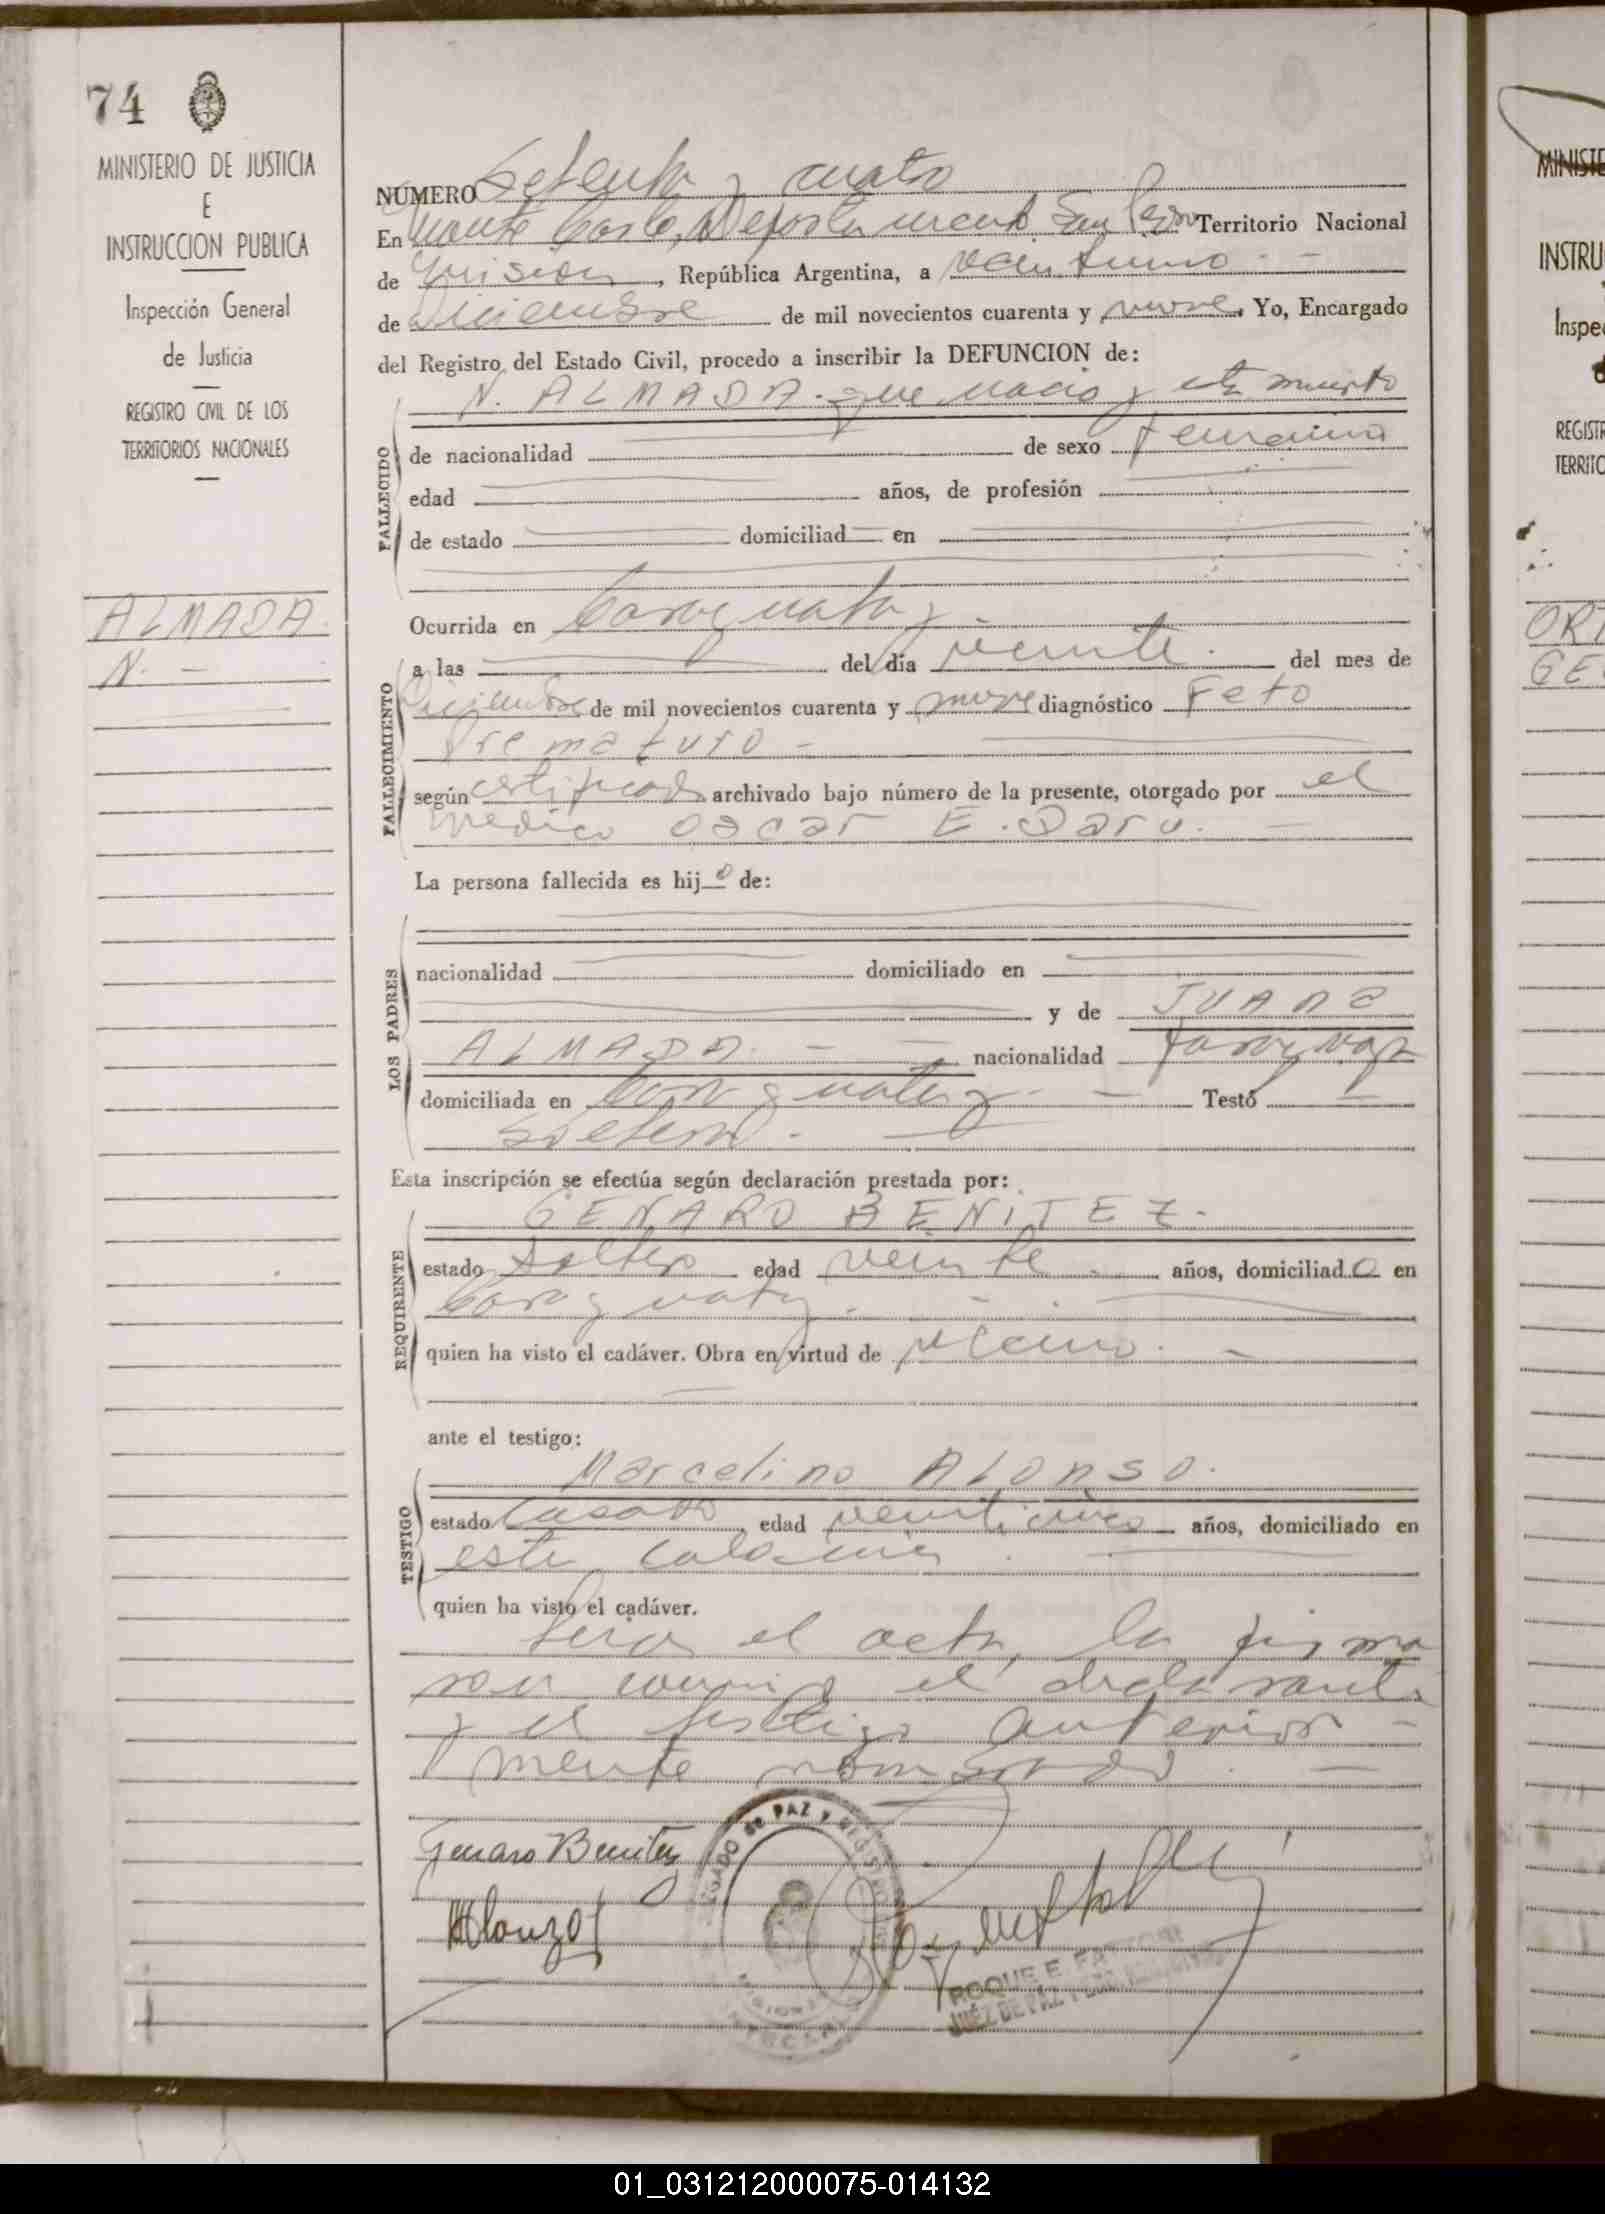 74
MINISTERIO DE JUSTICIA
E
INSTRUCCION PUBLICA
Inspección General
de Justicia
REGISTRO CIVIL DE LOS
TERRITORIOS NACIONALES
ALMADA.
N. -
NÚMERO Setenta y cuatro
En Monte Carlo, Departamento San Territorio Nacional
de Misiones, República Argentina, a veintiuno
de Diciembre de mil novecientos cuarenta y nueve, Yo, Encargado
del Registro del Estado Civil, procedo a inscribir la DEFUNCION de:
N. ALMADA. que nacio y esta muerto
FALLECIDO
de nacionalidad de sexo femenino
edad años, de profesión
de estado domiciliad en
Ocurrida en Caraguatay
FALLECIMIENTO
a las del día veinte. del mes de
Diciembre de mil novecientos cuarenta y nueve diagnóstico Feto
Prematuro -
según certificado archivado bajo número de la presente, otorgado por el
medico Oscar E. Daru.
La persona fallecida es hijo de:
LOS PADRES
nacionalidad domiciliado en
y de JUANA
ALMADA - - nacionalidad Paraguaya
domiciliada en Caraguatay - Testó -
Soltera. -
Esta inscripción se efectúa según declaración prestada por:
GENARO BENITEZ.
REQUIRENTE
estado Soltero edad veinte años, domiciliado en
Caraguatay.
quien ha visto el cadáver. Obra en virtud de vecino. -
ante el testigo:
Marcelino ALONSO.
TESTIGO
estado Casado edad veinticinco años, domiciliado en
esta colonia.
quien ha visto el cadáver.
Leida el acta, la firma
ron conmigo el declarante
y el testigo anterior -
mente nombrado. -
Genaro Benitez
MAlonzo
JUZGADO de PAZ y REGISTRO
MISIONES
ROQUE E. FATTORI
JUEZ DE PAZ Y
MINISTE
INSTRU
Inspe
REGISTR
TERRITO
ORT
GE
01_031212000075-014132